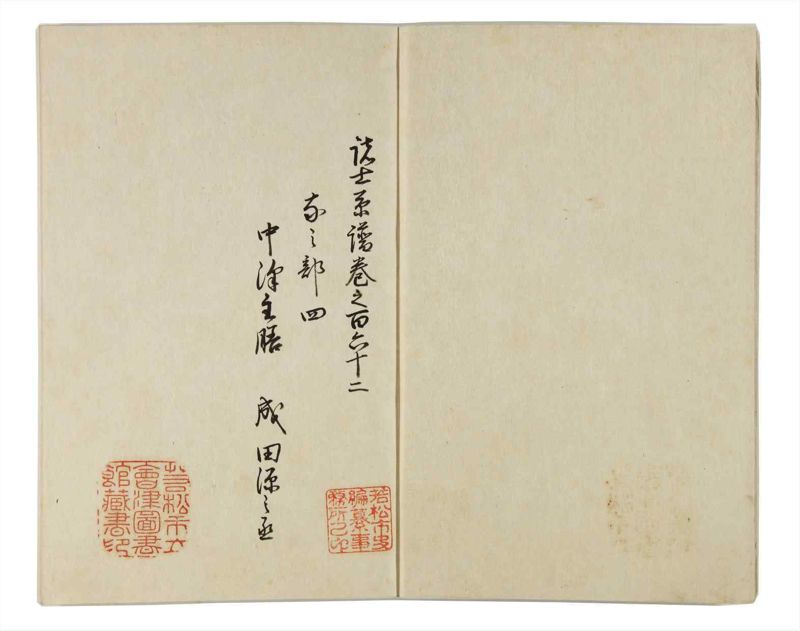 諸士系譜巻之百六十二
な之部四
中澤主膳 成田源之丞
若松市史
編纂事
務所之印
若松市立
會津圖書
館藏書印